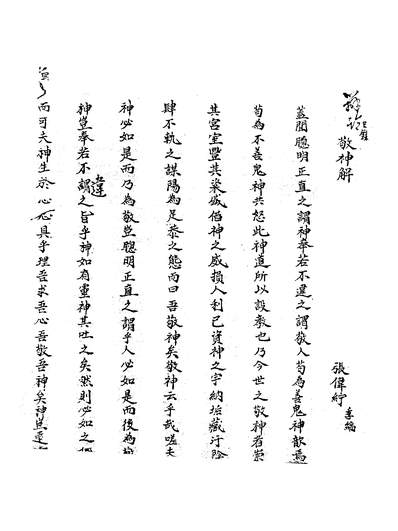 敬神解
張偉紳 季編
蓋聞聰明正直之謂神奉若不違之謂敬人苟為善鬼神歆焉
苟為不善鬼神共怒此神道所以設教也乃今世之敬神者崇
其宮室豐其粢盛借神之威損人利己資神之宇納垢藏汙陰
肆不軌之謀陽為足恭之態而曰吾敬神矣敬神云乎哉嗟夫
神必如是而乃為敬豈聰明正直之謂乎人必如是而後為
神豈奉若不違之旨乎神如有靈神其吐之矣然則必如之何
而可夫神生於心心具乎理吾求吾心吾敬吾神矣神